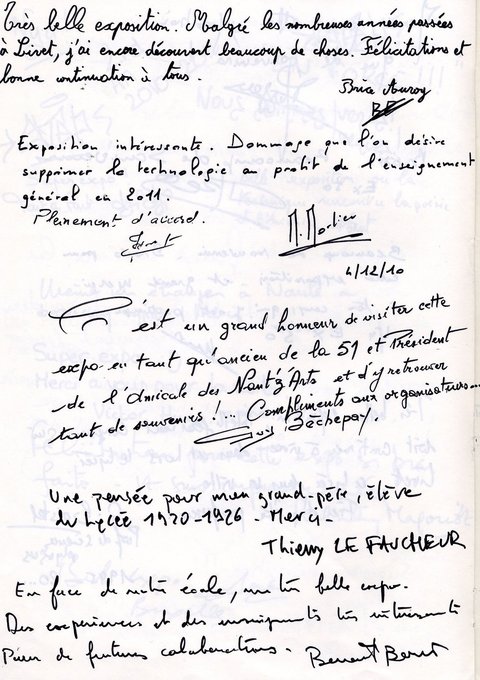 Très belle exposition. Malgré les nombreuses années passées
à Livet, j'ai encore découvert beaucoup de choses. Félicitations et
bonne continuation à tous.
Brice Auroy
Exposition intéressante. Dommage que l'on désire
supprimer la technologie au profit de l'enseignement
général en 2011.
Pleinement d'accord.
4/12/10
C'est un grand honneur de visiter cette
expo en tant qu'ancien de la 51 et Président
de l'Amicale des Nantz'Arts et d'y retrouver
tant de souvenirs !... Compliments aux organisateurs...
Guy Bèchepay.
Une pensée pour mon grand-père, élève
du lycée 1920-1926. Merci.
Thierry LE FAUCHEUR
En face de notre école, une très belle expo.
Des expériences et des enseignants très intéressants
de futures collaborations.